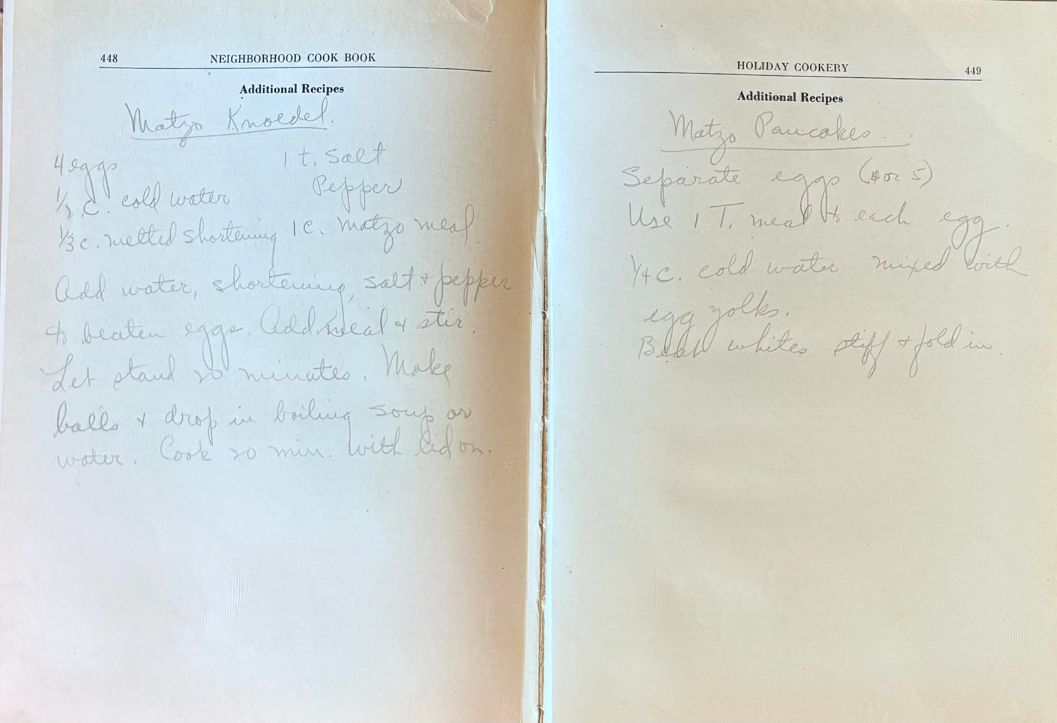 448 NEIGHBORHOOD COOK BOOK
Additional Recipes
Matzo Knoedel.
4 eggs 1 t. salt
1/2 c. cold water Pepper
1/3 c. melted shortening 1 c. matzo meal.
Add water, shortening, salt & pepper
to beaten eggs. Add meal & stir.
Let stand 20 minutes. Make
balls & drop in boiling soup or
water. Cook 20 min. with lid on.
HOLIDAY COOKERY 449
Additional Recipes
Matzo Pancakes.
Separate eggs (4 or 5)
Use 1 T. meal to each egg.
1/4 c. cold water mixed with
egg yolks.
Beat whites stiff & fold in.